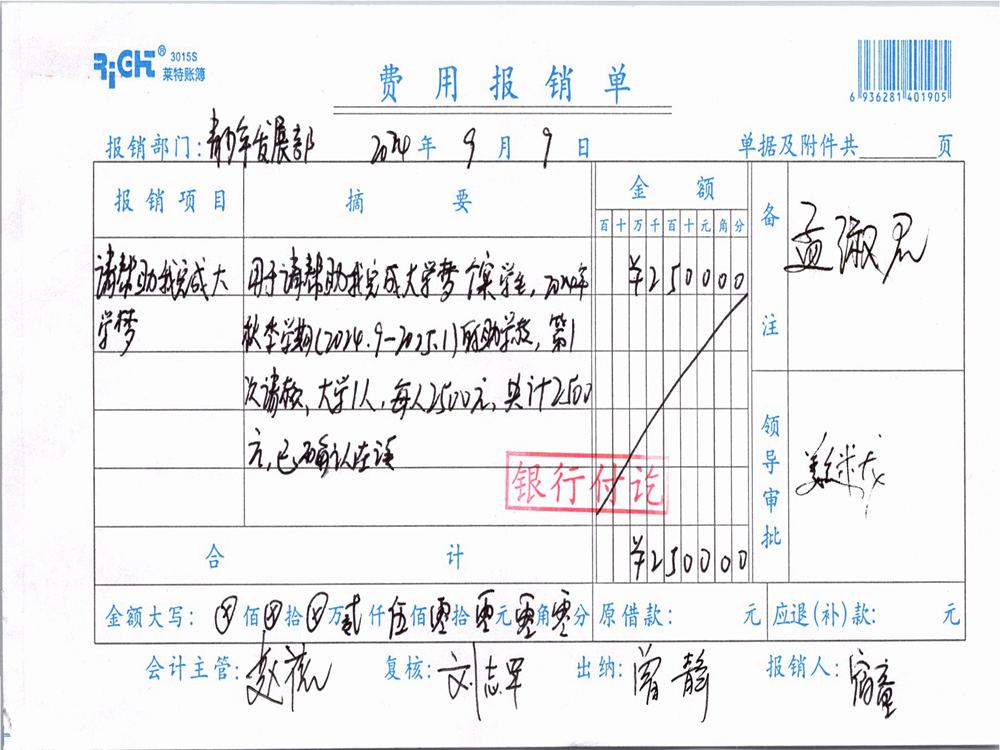 RiGHT® 3015S
莱特账簿
费用报销单
6 936281 401905
报销部门：青少年发展部 2024年9月9日 单据及附件共 页
报销项目 摘要 金额 备注
百十万千百十元角分
孟淑君
请帮助我完成大 用于请帮助我完成大学梦个案学生，2024年 ¥250000
学梦 秋季学期(2024.9-2025.1)助学款，第1
次请款，大学1人，每人2500元，共计2500
元，已确认在读
银行付讫
领导审批
合计 ¥250000
金额大写：⊗佰⊗拾⊗万贰仟伍佰零拾零元零角零分 原借款： 元 应退(补)款： 元
会计主管： 复核：刘志军 出纳：曾静 报销人：